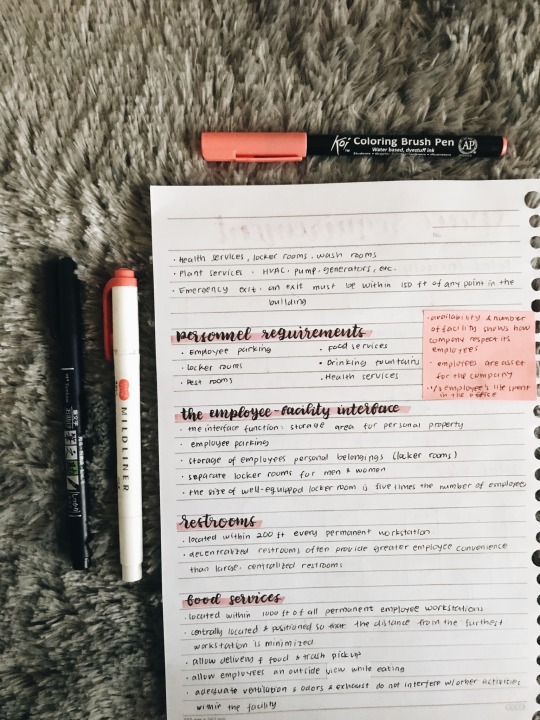 Koi Coloring Brush Pen
Water based, dyestuff ink
AP
No.
· Health services, locker rooms, wash rooms
· Plant services - HVAC, pump, generators, etc.
· Emergency exit - an exit must be within 150 ft of any point in the
building
personnel requirements
· Employee parking
· locker rooms
· Rest rooms
· Food services
· Drinking fountains
· Health services
· availability & number
of facility shows how
company respect its
employees
· employees are asset
for the company
· 1/3 employee's life spent
in the office
the employee-facility interface
· the interface function: storage area for personal property
· employee parking
· storage of employees personal belongings (locker rooms)
· separate locker rooms for men & women
· the size of well-equipped locker room is five times the number of employees
restrooms
· located within 200 ft every permanent workstation
· decentralized restrooms often provide greater employee convenience
than large, centralized restrooms
food services
· located within 1000 ft of all permanent employee workstations
· centrally located & positioned so that the distance from the furthest
workstation is minimized
· allow delivery of food & trash pickup
· allow employees an outside view while eating
· adequate ventilation & odors & exhaust do not interfere w/other activities
within the facility
MILDLINER